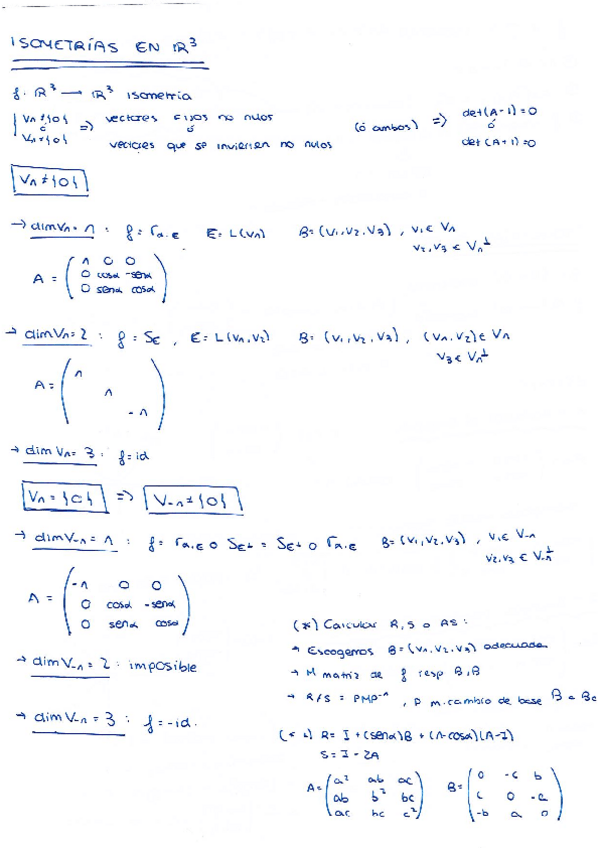 ISOMETRÍAS EN ℝ³
f: ℝ³ → ℝ³ isometría
{ V₁ ≠ {0} ó V₋₁ ≠ {0} ⇒ vectores fijos no nulos ó vectores que se invierten no nulos (ó ambos) ⇒ det(A-I)=0 ó det(A+I)=0
V₁ ≠ {0}
→ dim V₁ = 1 : f = r_α,E E = L(v₁) B = (v₁, v₂, v₃), v₁ ∈ V₁
v₂, v₃ ∈ V₁^⊥
A = ( 1 0 0
0 cosα -senα
0 senα cosα )
→ dim V₁ = 2 : f = S_E, E = L(v₁, v₂) B = (v₁, v₂, v₃), (v₁, v₂) ∈ V₁
v₃ ∈ V₁^⊥
A = ( 1
1
-1 )
→ dim V₁ = 3 : f = id
V₁ = {0} ⇒ V₋₁ ≠ {0}
→ dim V₋₁ = 1 : f = r_α,E ∘ S_E⊥ = S_E⊥ ∘ r_α,E B = (v₁, v₂, v₃), v₁ ∈ V₋₁
v₂, v₃ ∈ V₋₁^⊥
A = ( -1 0 0
0 cosα -senα
0 senα cosα )
→ dim V₋₁ = 2 : imposible
→ dim V₋₁ = 3 : f = -id.
(*) Calcular R, S o AS:
→ Escogemos B = (v₁, v₂, v₃) adecuada
→ M matriz de f resp B, B
→ R/S = PMP⁻¹, P m. cambio de base B a Bc
R = I + (senα)B + (1-cosα)(A-I)
S = I - 2A
A = ( a² ab ac
ab b² bc
ac bc c² )
B = ( 0 -c b
c 0 -a
-b a 0 )